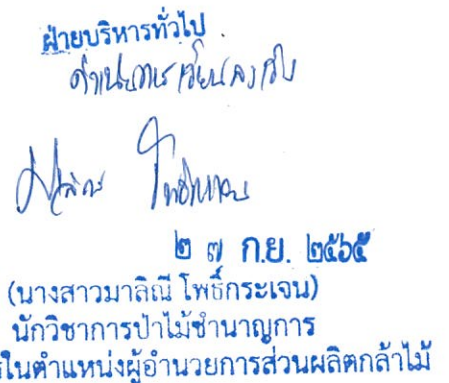 ฝ่ายบริหารทั่วไป
ดำเนินการเวียนลงเว็บ
๒ ๗ ก.ย. ๒๕๖๕
(นางสาวมาลิณี โพธิ์กระเจน)
นักวิชาการป่าไม้ชำนาญการ
ในตำแหน่งผู้อำนวยการส่วนผลิตกล้าไม้